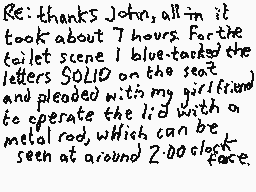 Re: thanks John, all in it
took about 7 hours. For the
toilet scene I blue-tacked the
letters SOLID on the seat
and pleaded with my girlfriend
to operate the lid with a
metal rod, which can be
seen at around 2.00 clock
face.